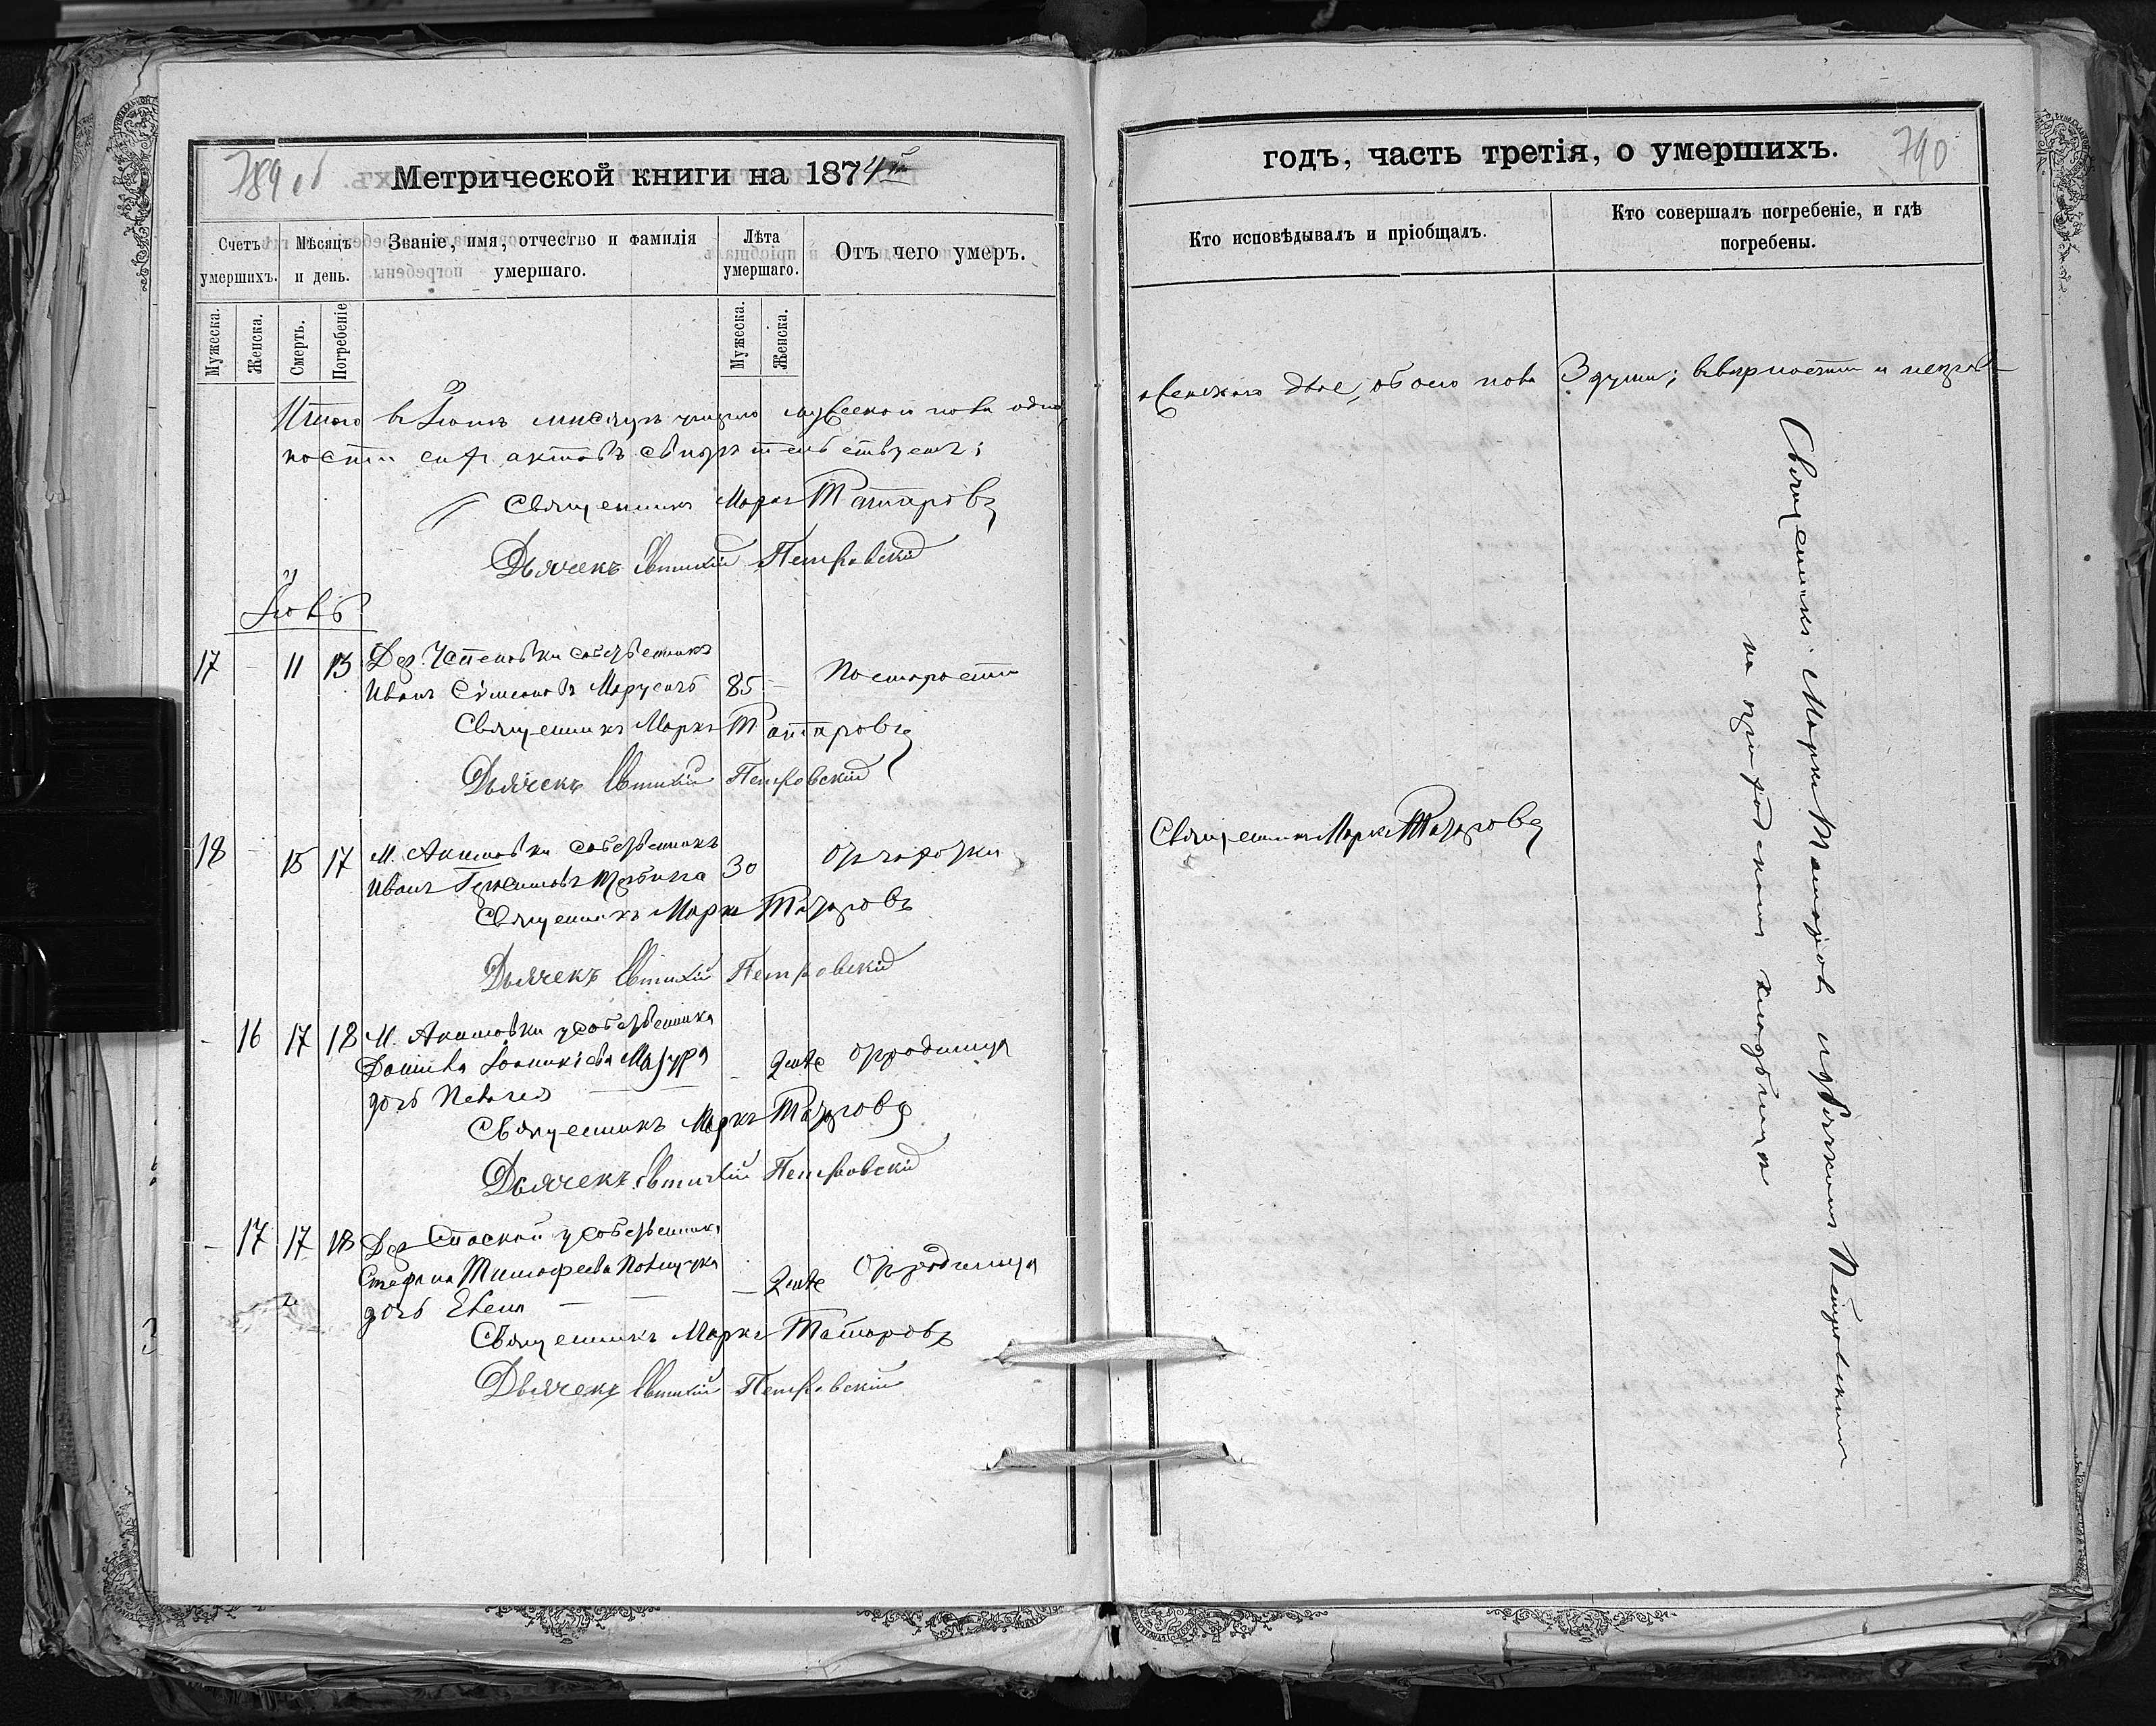 789 об
Метрической книги на 1874й
Счетъ умершихъ.
Мѣсяцъ и день.
Званіе, имя, отчество и фамилія умершаго.
Лѣта умершаго.
Отъ чего умеръ.
Мужеска.
Женска.
Смерть.
Погребеніе
Мужеска.
Женска.
Итого въ Іюнѣ мѣсяцѣ умерло мужескаго пола одна,
ности сихъ актовъ свидѣтельствуемъ:
Священникъ Маркъ Татаровъ
Дьячекъ Евтихій Петровскій
Іюль
17 - 11 13 Дер. собственникъ
Иванъ Симеоновъ 85 - По старости
Священникъ Маркъ Татаровъ
Дьячекъ Евтихій Петровскій
18 - 15 17 М. Акимовки собственникъ
Иванъ 30 От горячки
Священникъ Маркъ Татаровъ
Дьячекъ Евтихій Петровскій
- 16 17 18 М. Акимовки у собственника
Даніила Іоанникіева Мазура - 2 мѣс От родимца
дочь Пелагея
Священникъ Маркъ Татаровъ
Дьячекъ Евтихій Петровскій
- 17 17 18 Дер Спаской у собственника
Стефана Тимофеева - 2 мѣс От родимца
дочь Елена
Священникъ Маркъ Татаровъ
Дьячекъ Евтихій Петровскій
годъ, часть третія, о умершихъ.
790
Кто исповѣдывалъ и пріобщалъ.
Кто совершалъ погребеніе, и гдѣ погребены.
женскаго двѣ, обоего пола 3 души; в вѣрности и
Священникъ Маркъ Татаровъ
Священникъ Маркъ Татаровъ и дьячкомъ Петровскимъ
на приходскомъ кладбищѣ